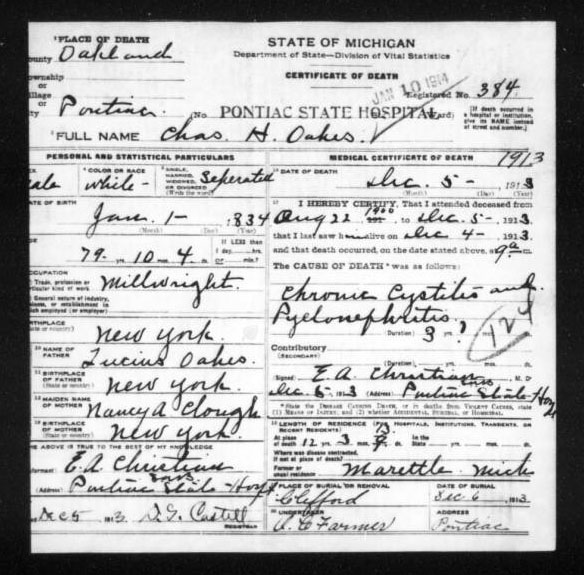 ¹PLACE OF DEATH
STATE OF MICHIGAN
County Oakland
Department of State—Division of Vital Statistics
ownship
CERTIFICATE OF DEATH
JAN 10 1914
illage
Registered No. 384
ity Pontiac (No PONTIAC STATE HOSPITAL Ward)
[If death occurred in a hospital or institution, give its NAME instead of street and number.]
²FULL NAME Chas H. Oakes.
PERSONAL AND STATISTICAL PARTICULARS
MEDICAL CERTIFICATE OF DEATH 1913
ale
COLOR OR RACE white-
SINGLE, MARRIED, WIDOWED, OR DIVORCED (Write the word) Seperated
DATE OF DEATH Dec 5- 1913
(Month) (Day) (Year)
DATE OF BIRTH
Jan. 1- 1834
(Month) (Day) (Year)
I HEREBY CERTIFY, That I attended deceased from
Aug 22 1900, to Dec 5- 1913
that I last saw him alive on Dec 4- 1913
and that death occurred, on the date stated above, at 9a
AGE
79 yrs. 10 mos. 4 ds.
If LESS than 1 day, hrs. or min.?
The CAUSE OF DEATH* was as follows:
Chronic Cystitis and
Pyelonephritis.
(Duration) 3 yrs.
124
OCCUPATION
Trade, profession or particular kind of work Millwright.
General nature of industry, business, or establishment in which employed (or employer)
Contributory
(SECONDARY)
(Duration) yrs. mos. ds.
BIRTHPLACE
(State or country) New York.
NAME OF FATHER Lucius Oakes.
Signed E A Christian M. D.
Dec 5, 1913 (Address) Pontiac State Hosp
BIRTHPLACE OF FATHER
(State or country) New York.
*State the Disease Causing Death, or in deaths from Violent Causes, state (1) Means of Injury, and (2) whether Accidental, Suicidal, or Homicidal.
MAIDEN NAME OF MOTHER Nancy A Clough
LENGTH OF RESIDENCE (For Hospitals, Institutions, Transients, or Recent Residents)
At place of death 12 yrs. 3 mos. In the State
BIRTHPLACE OF MOTHER
(State or country) New York
Where was disease contracted, if not at place of death?
THE ABOVE IS TRUE TO THE BEST OF MY KNOWLEDGE
Former or usual residence Marette. Mich
Informant E. A. Christian
(Address) Pontiac State-Hosp
PLACE OF BURIAL OR REMOVAL Clifford
DATE OF BURIAL Dec 6 1913
Dec 5 1913
REGISTRAR
UNDERTAKER Farmer
ADDRESS Pontiac